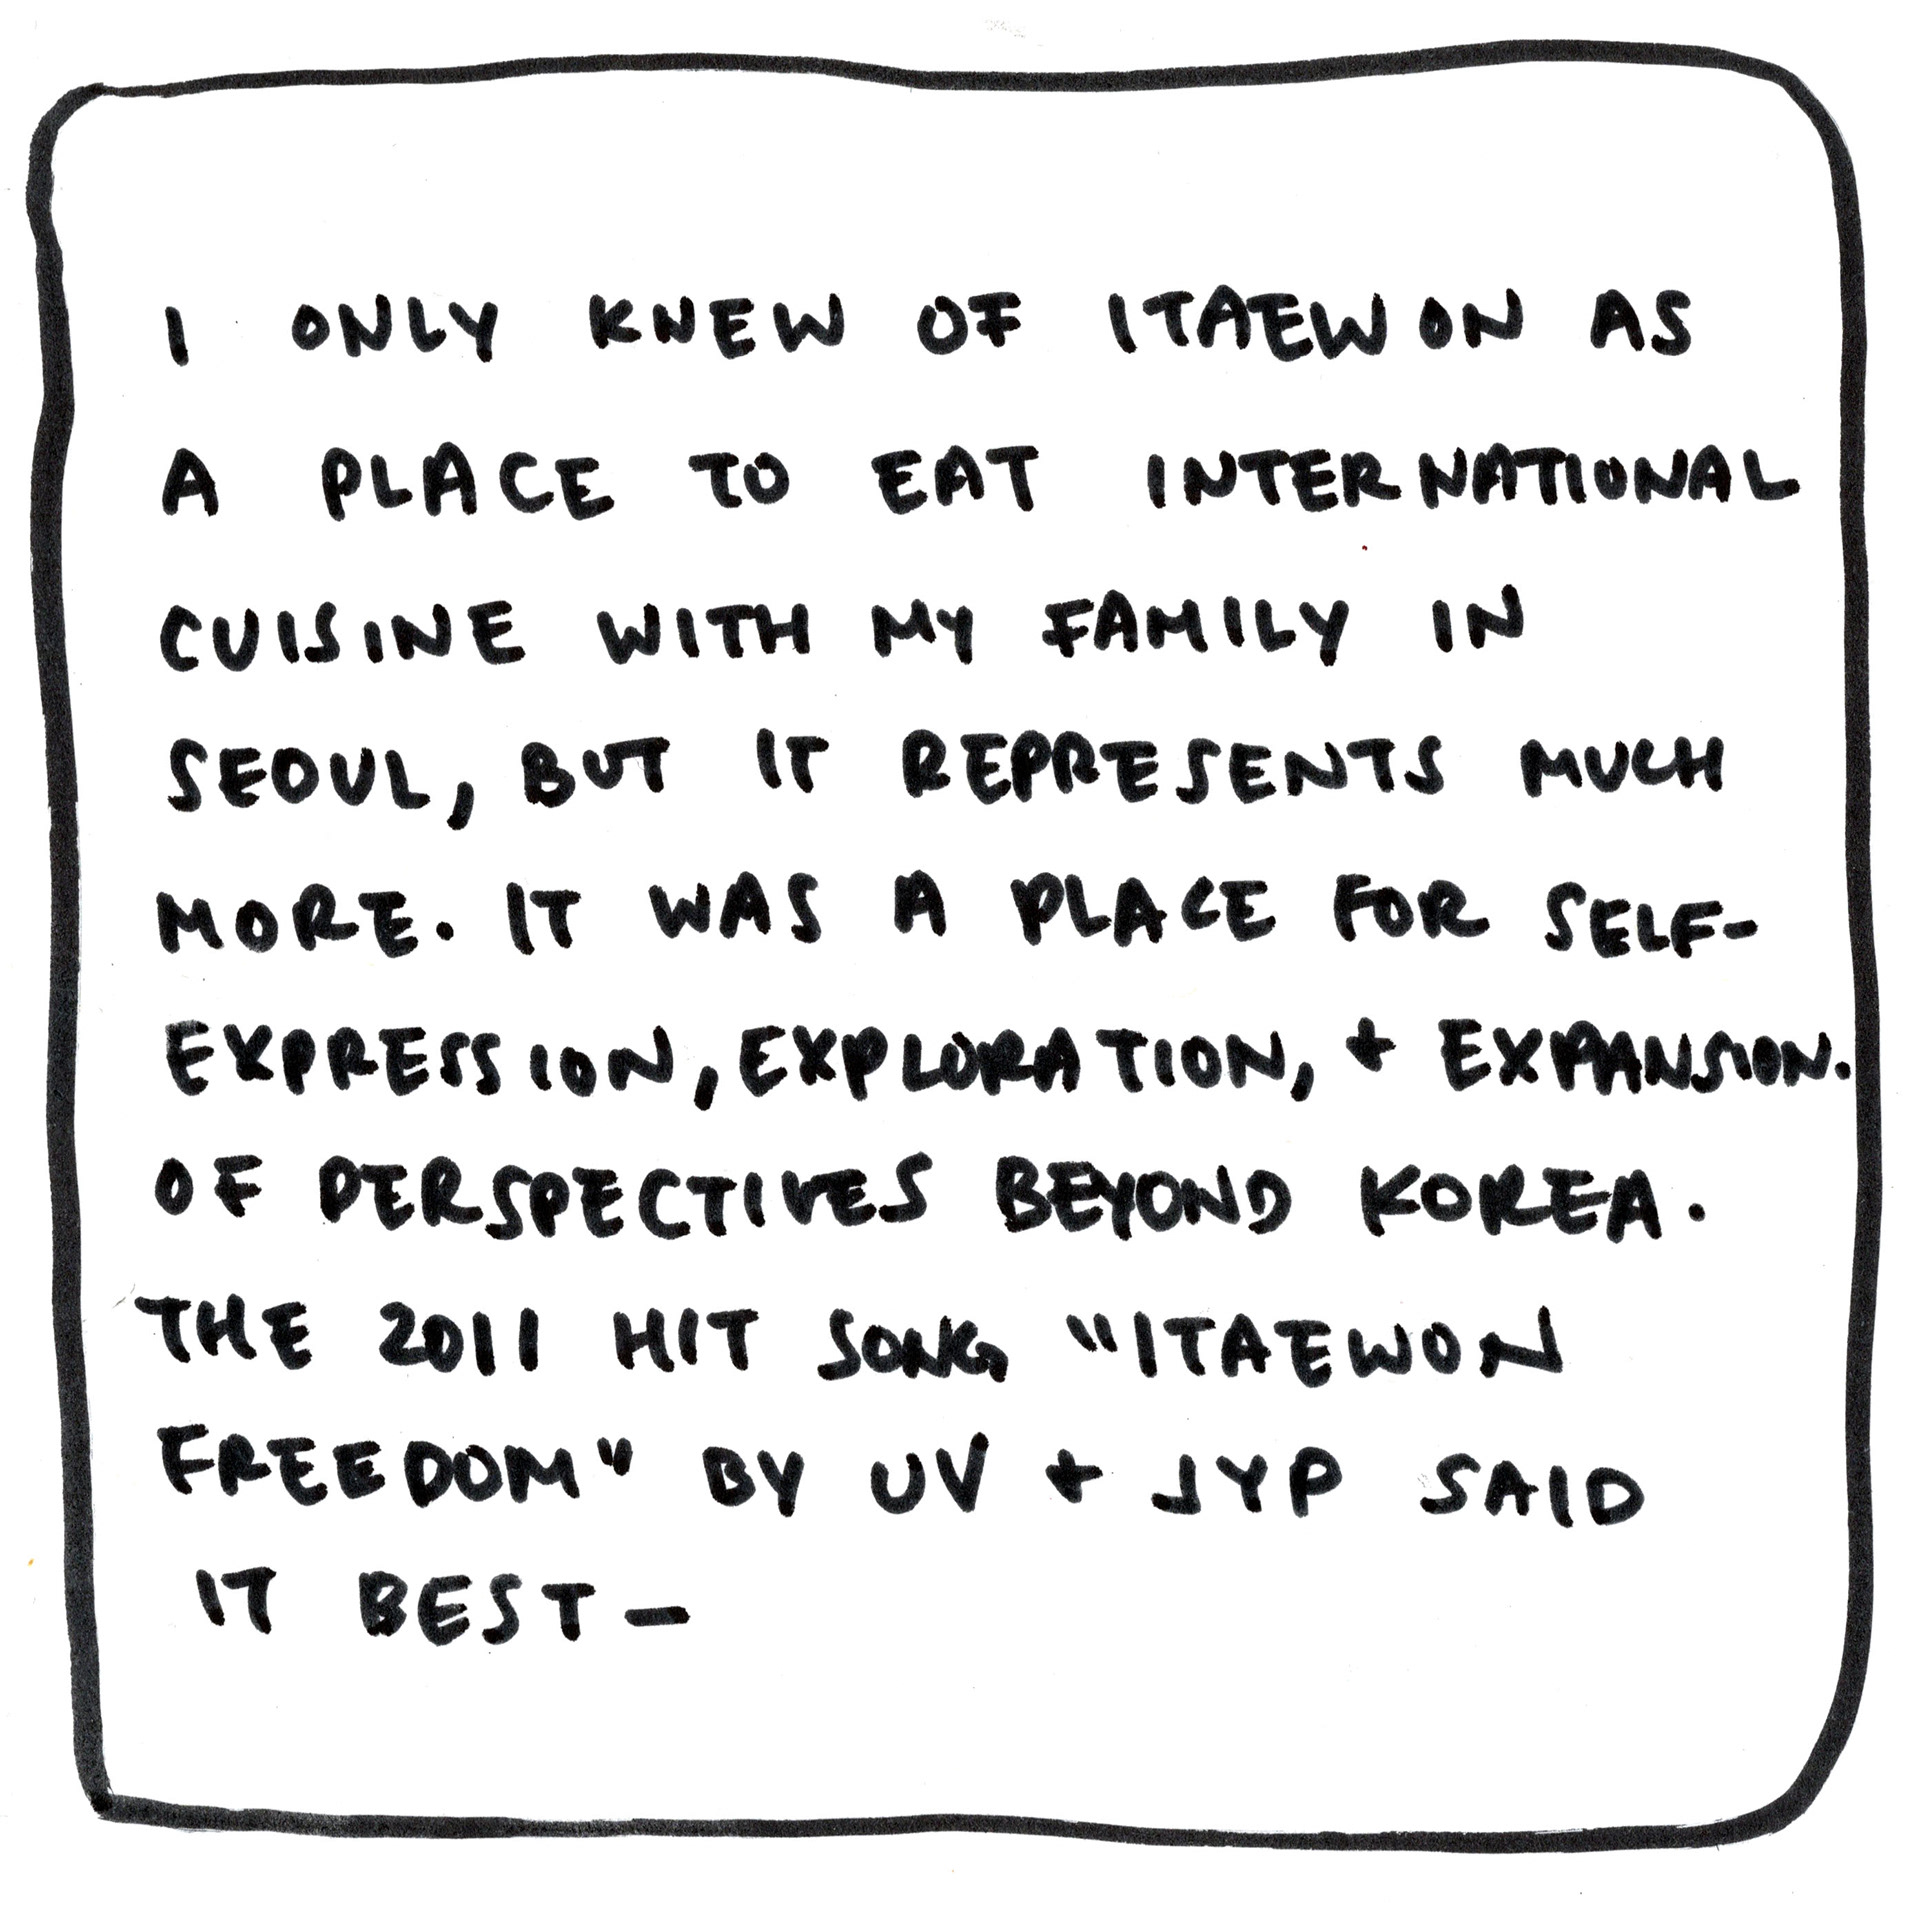 I ONLY KNEW OF ITAEWON AS
A PLACE TO EAT INTERNATIONAL
CUISINE WITH MY FAMILY IN
SEOUL, BUT IT REPRESENTS MUCH
MORE. IT WAS A PLACE FOR SELF-
EXPRESSION, EXPLORATION, + EXPANSION.
OF PERSPECTIVES BEYOND KOREA.
THE 2011 HIT SONG "ITAEWON
FREEDOM" BY UV + JYP SAID
IT BEST—